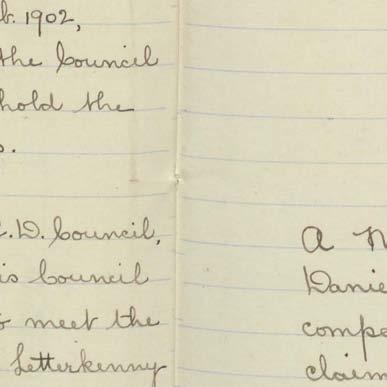 b. 1902,
the Council
hold the
s.
C.D. Council,
is Council
to meet the
Letterkenny
A N
Danie
compe
claim